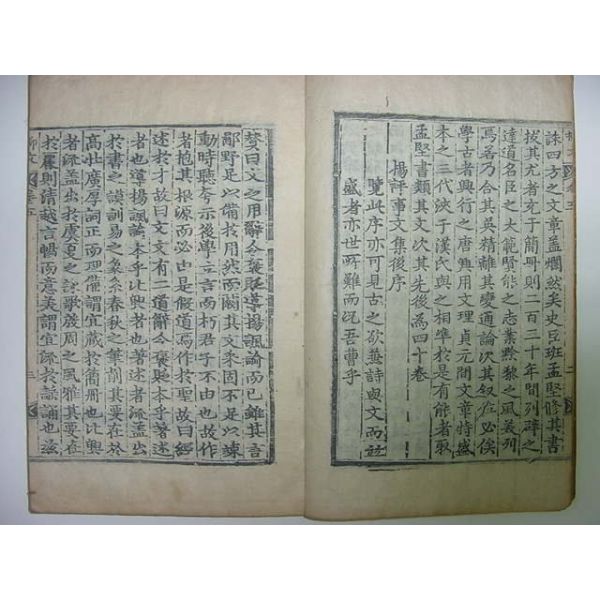 誄四方之文章盖爛然矣史臣班孟堅修其書
拔其尤者充于簡冊則二百三十年間列辟之
達道名臣之大範賢能之志業黔黎之風美列
焉若乃合其英精離其變通論次其叙位必俟
學古者興行之唐興用文理貞元間文章特盛
本之三代浹于漢氏與之相準於是有能者取
孟堅書類其文次其先後為四十卷
楊評事文集後序
覽此序亦可見古之欲兼詩與文而並
盛者亦世所難而况吾曹乎
二
贊曰文之用辭令褒貶導揚諷諭而已雖其言
鄙野足以備於用然而闕其文采固不足以竦
動時聽夸示後學立言而朽君子不由也故作
者抱其根源而必由是假道焉作於聖故曰經
述於才故曰文文有二道辭令褒貶本乎著述
者也導揚諷諭本乎比興者也著述者流盖出
於書之謨訓易之象系春秋之筆削其要在於
高壯廣厚詞正而理備謂宜藏於簡冊也比興
者流盖出於虞夏之詠歌殷周之風雅其要在
於麗則清越言暢而意美謂宜錄於謠誦也茲
柳文 卷五 三